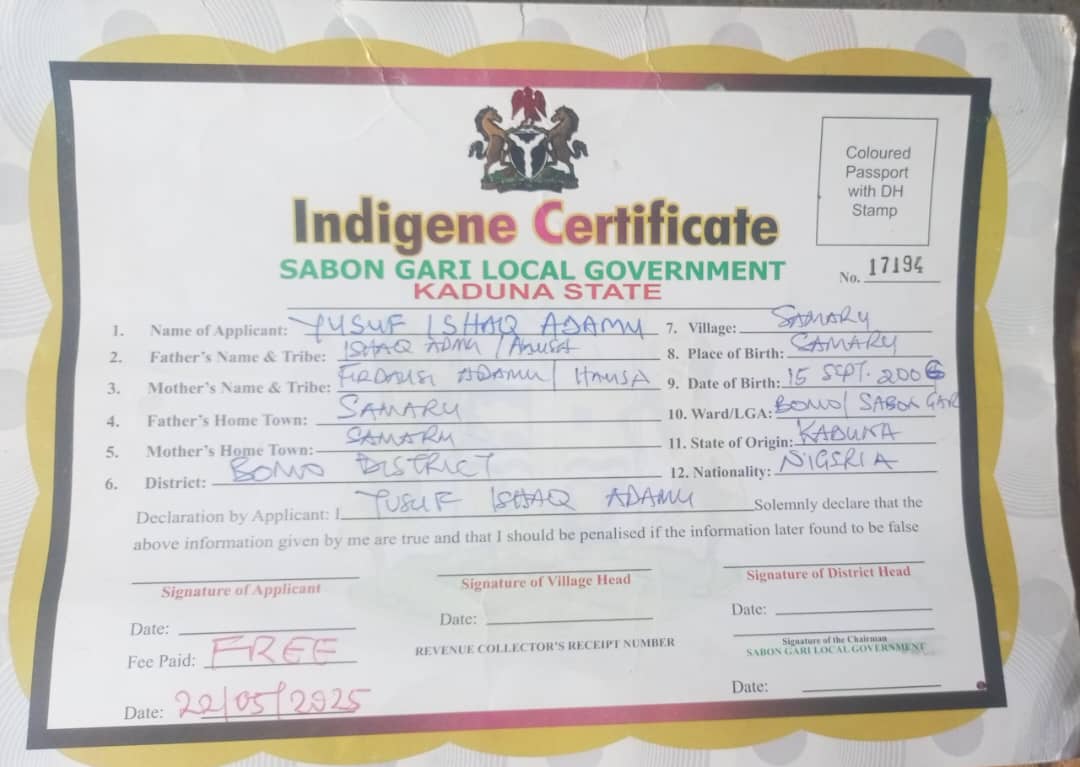 Coloured
Passport
with DH
Stamp
Indigene Certificate
SABON GARI LOCAL GOVERNMENT
KADUNA STATE
No. 17194
1. Name of Applicant: YUSUF ISHAQ ADAMU
2. Father's Name & Tribe: ISHAQ ADMU / HAUSA
3. Mother's Name & Tribe: FIRDAUSI ADAMU / HAUSA
4. Father's Home Town: SAMARU
5. Mother's Home Town: SAMARU
6. District: BOMO DISTRICT
7. Village: SAMARU
8. Place of Birth: SAMARU
9. Date of Birth: 15 SEPT. 2006
10. Ward/LGA: BOMO / SABON GARI
11. State of Origin: KADUNA
12. Nationality: NIGERIA
Declaration by Applicant: I YUSUF ISHAQ ADAMU Solemnly declare that the
above information given by me are true and that I should be penalised if the information later found to be false
Signature of Applicant
Date:
Fee Paid: FREE
Date: 22/05/2025
Signature of Village Head
Date:
REVENUE COLLECTOR'S RECEIPT NUMBER
Signature of District Head
Date:
Signature of the Chairman
SABON GARI LOCAL GOVERNMENT
Date: